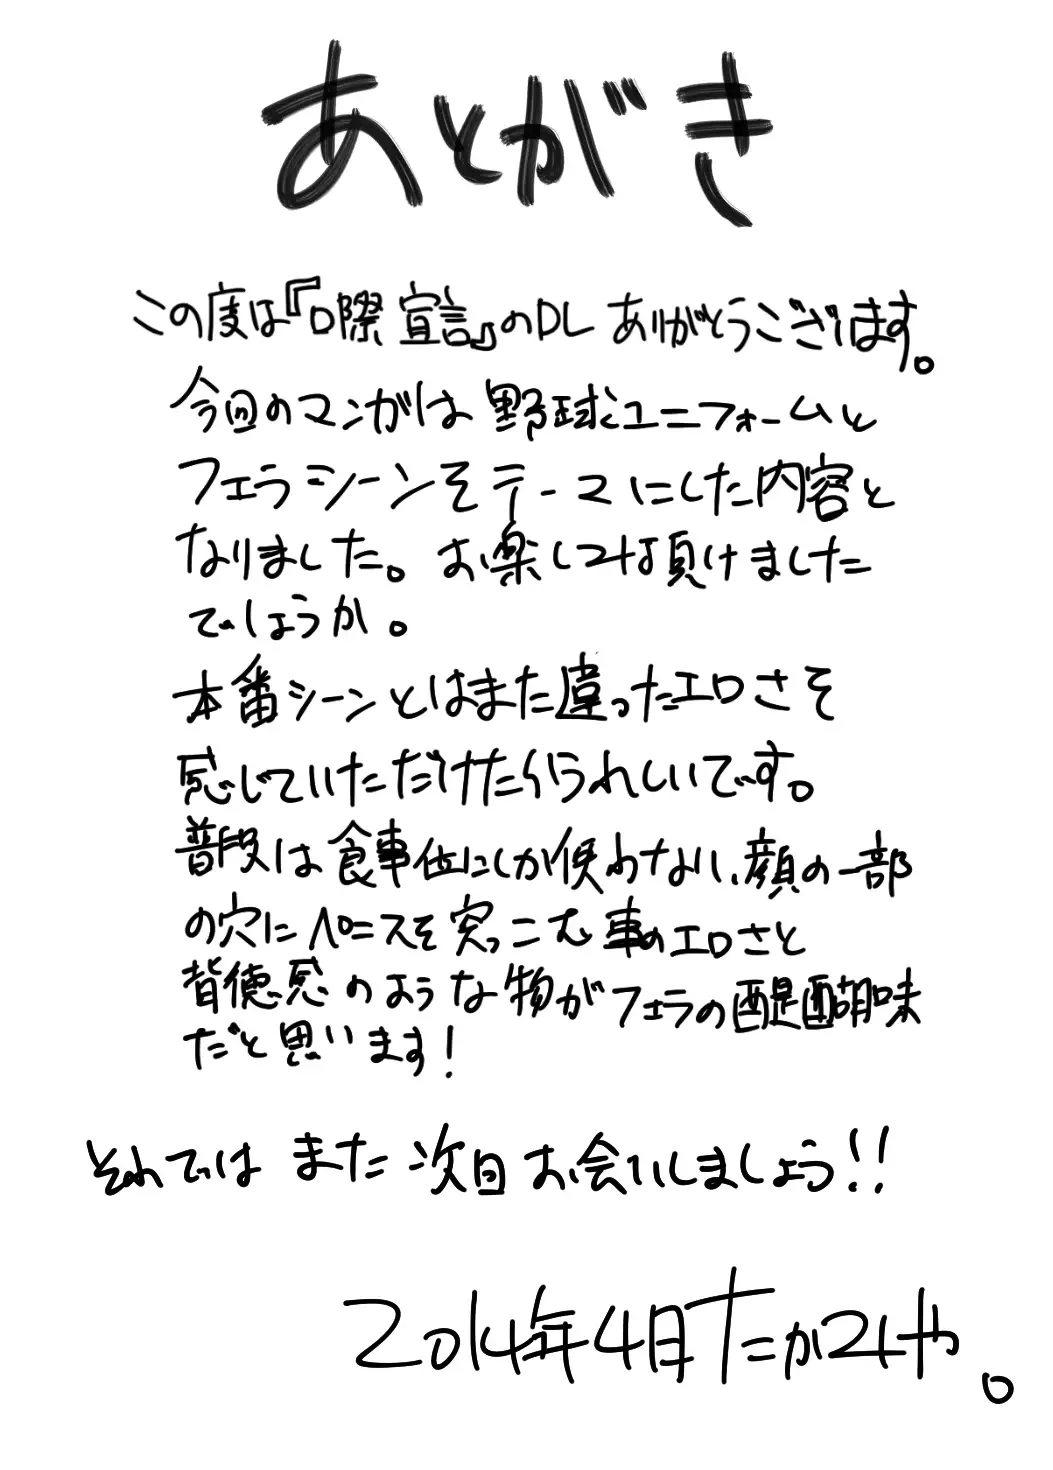 あとがき
この度は『口際宣言』のDLありがとうございます。
今回のマンガは野球ユニフォームと
フェラシーンをテーマにした内容と
なりました。お楽しみ頂けました
でしょうか。
本番シーンとはまた違ったエロさを
感じていただけたらうれしいです。
普段は食事位にしか使わない、顔の一部
の穴にペニスを突っこむ事のエロさと
背徳感のような物がフェラの醍醐味
だと思います!
それではまた次回お会いしましょう!!
2014年4月